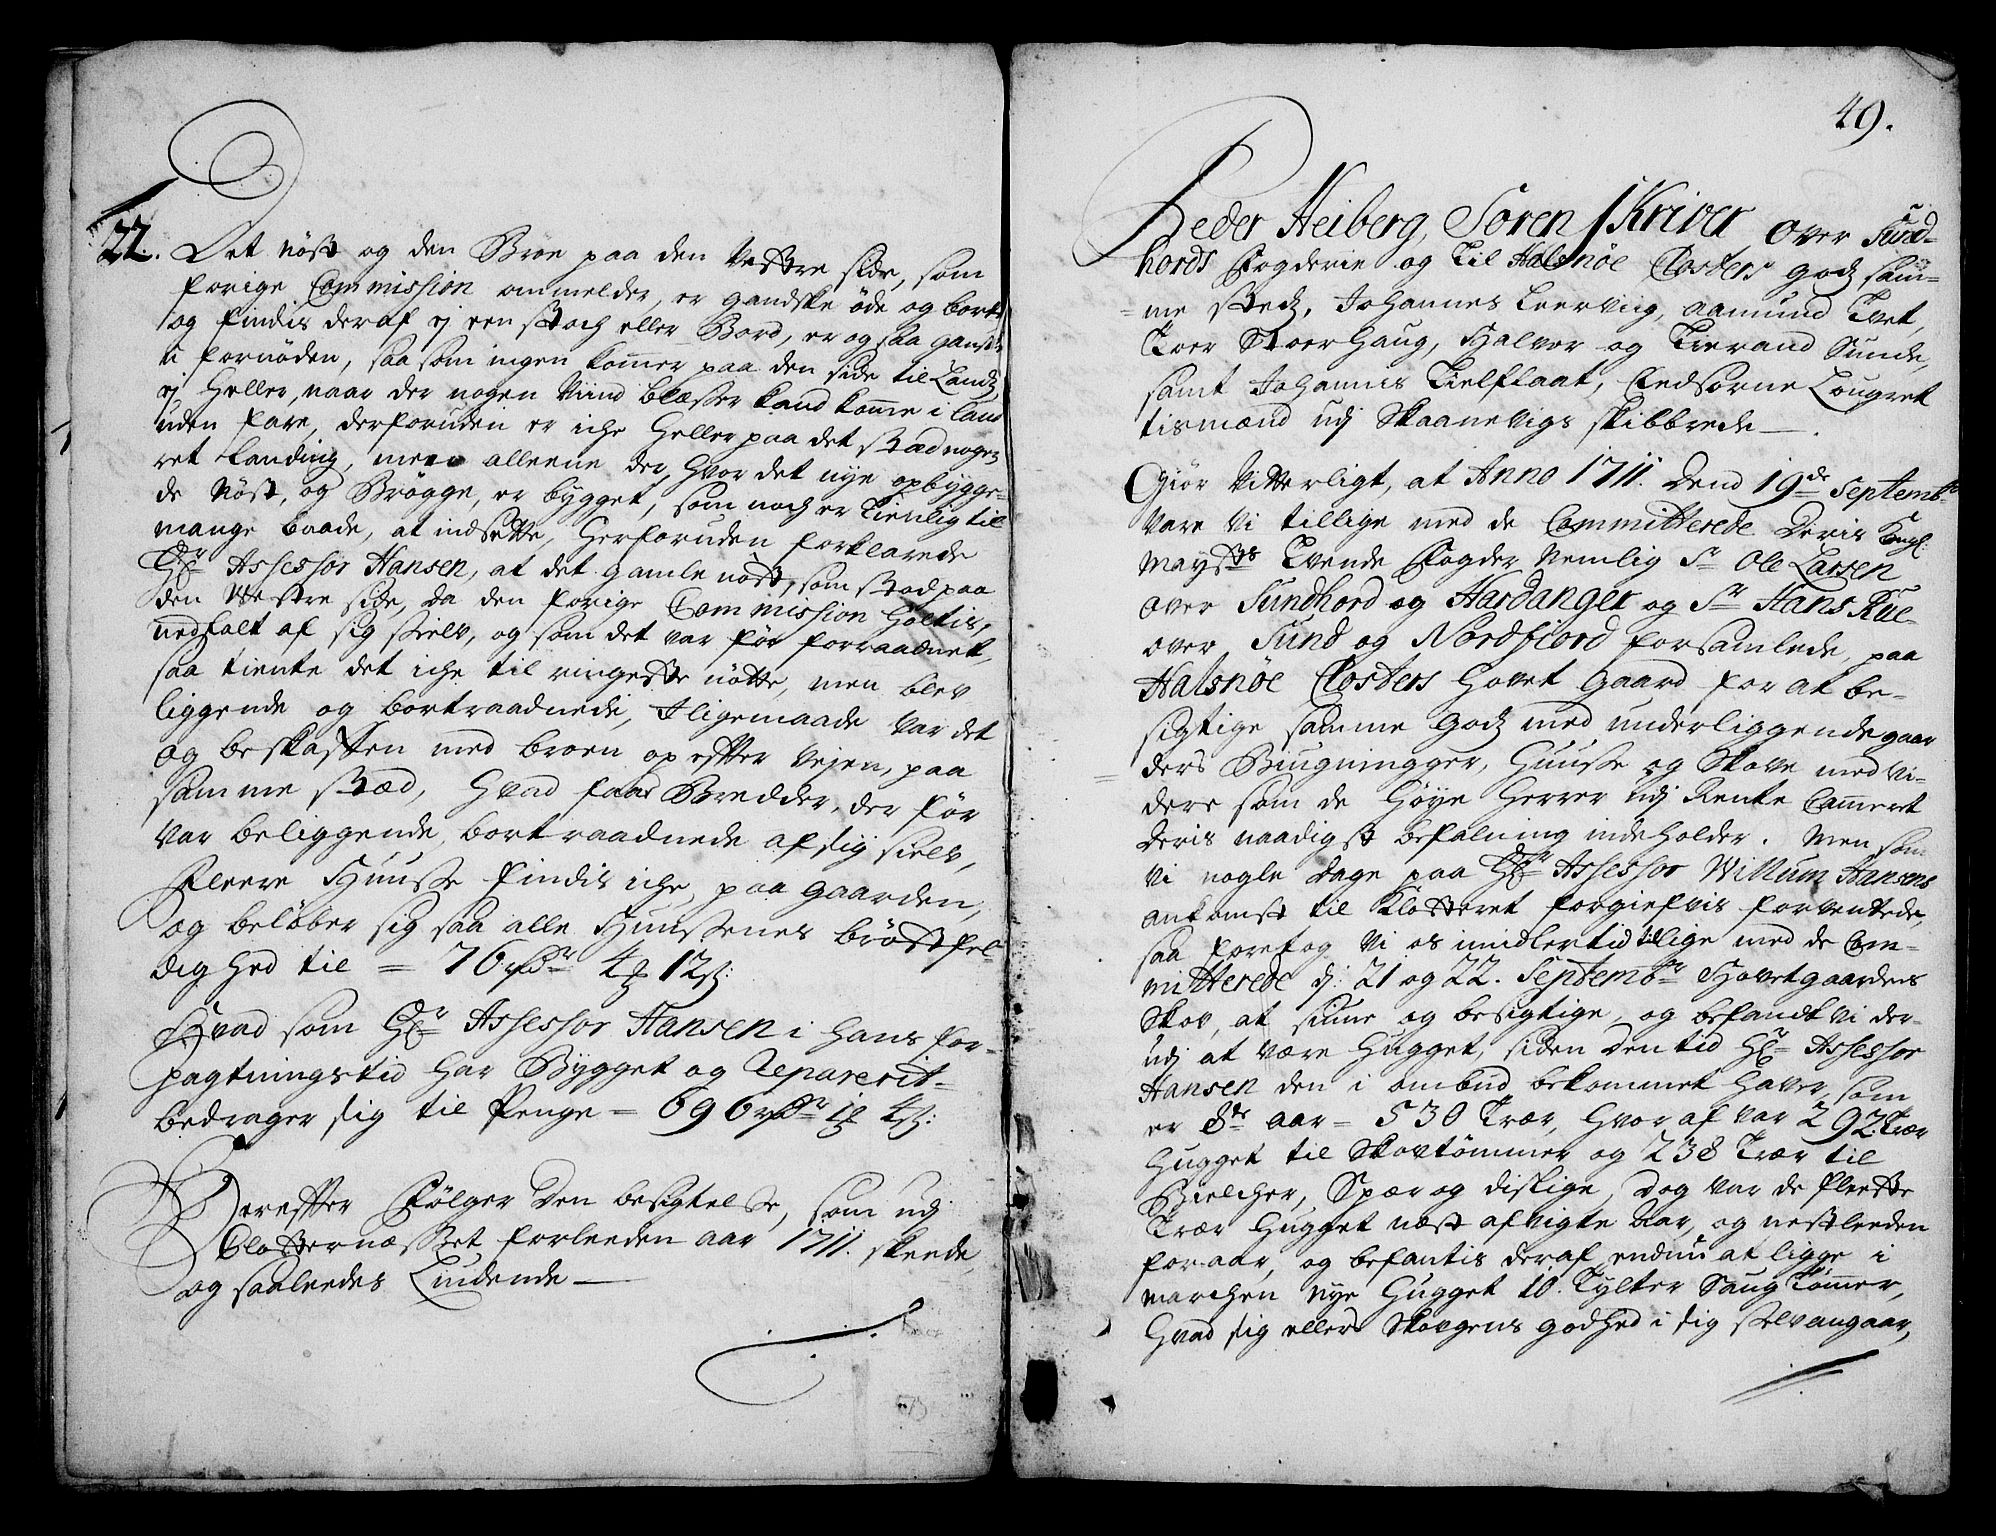 22. Det nøst og den Broe paa den Vestre side, som
forige Commission ommelder, er gandske øde og bort
og findis deraf ej een stoch eller Bord, er og saa gansk
u fornøden, saa som ingen kom̃er paa den side til Landz
ej heller, naar der nogen Viind blæsser kand kom̃e i land
uden fare, derforuden er iche heller paa det stæd nogen
ret Landing, men alleene der, hvor det nye opbygge-
de Nøst, og Brøgge, er bygget, som noch er tienlig til
mange baade, at indsette, herforuden forklarede
Hr Assessor Hansen, at det gamle nøst, som stod paa
den Westre side, da den forige Commission holtis,
nedfalt af sig sielv, og som det var før forraadnet,
saa tiente det iche til ringeste nøtte, men blev
liggende og bortraadnede, Iligemaade var det
og beskaffen med broen op efter Vejen, paa
samme stæd, hvad faae Bredder, der før
var beliggende, bortraadnede af sig sielv,
Fleere Huusse findis iche, paa gaarden,
og beløber sig saa alle Huussenes brøstfel-
dighed til = 76 rdr 4 ₰ 12 s:
Hvad som Hr Assessor Hansen i hans for-
pagtningstid har Bygget og Reparerit =
bedrager sig til Penge = 696 rdr 1 ₰ 4 s:
Derefter Følger den besigtelse, som udj
Closternæsset forleeden aar 1711. skeede,
og saaleedes Liudende —
49.
Peder Heiberg, Soren Skriver over Sund-
hords Fogderie og til Halsnøe Closters godz sam-
me stedz, Johannes Leervig, Aamund Tvet,
Toer Stoerhaug, Halvor og Tierand Sunde,
samt Johannis Tielflaat, Eedsorne Lougret
tismænd udj Skaanevigs skibbrede —.
Giør Vitterligt, at Anno 1711. Dend 19de Septembr
vare vi tillige med de Committerede Deris Kongl:
Maysts Tvende Fogder Nemlig Sr Ole Larsen
over Sundhord og Hardanger og Sr Hans Rue-
over Sund og Nordfiord forsamlede, paa
Halsnøe Closters Hovet Gaard for at be-
sigtige samme Godz med underliggende gaar
ders Biugningger, Huusse og Skove med Vi-
dere som de høye Herrer udj Rente Cam̃eret
deris naadigst befalning indeholder. Men som
vi nogle dage paa Hr Assessor Willum Hansens
ankomst til Klosteret forgiefvis forventede,
saa foretog vi os imidlertid tillige med de Com-
mitterede d: 21 og 22. Septembr Hovetgaardens
Skov, at siune og besigtige, og befandt vi der-
udj at være hugget, siden den tid Hr Assessor
Hansen den i ombud bekommet haver, som
er 8te aar = 530 Trær, hvor af var 292 Trær
hugget til Skovtømmer og 238 Trær til
Bielcher, Spær og dislige, dog var de fleeste
Trær hugget næst afvigte Aar, og nestleeden
foraar, og befantis deraf endnu at ligge i
marchen nye hugget 10. Tylter Saug Tøm̃er,
hvad sig ellers Skovgens godhed i sig selv angaar,